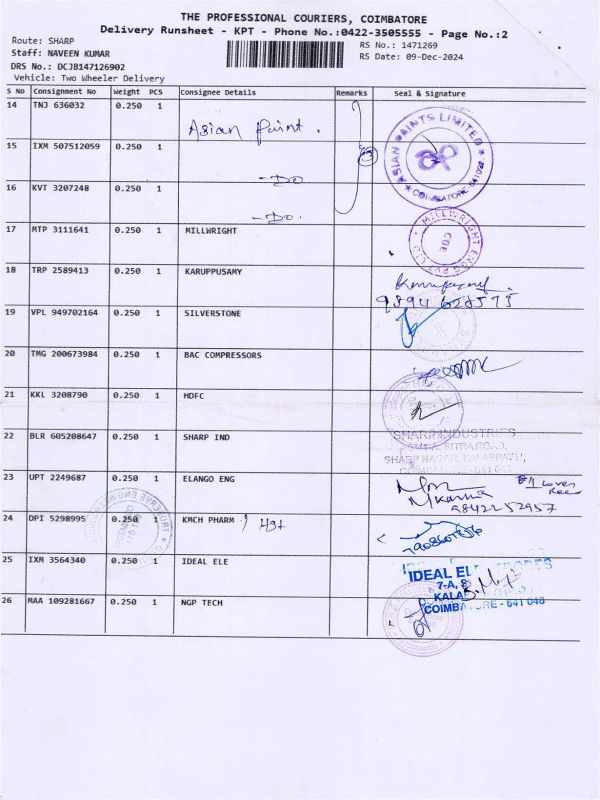 THE PROFESSIONAL COURIERS, COIMBATORE
Delivery Runsheet - KPT - Phone No.:0422-3505555 - Page No.:2
Route: SHARP
RS No.: 1471269
Staff: NAVEEN KUMAR
RS Date: 09-Dec-2024
DRS No.: DCJB147126902
Vehicle: Two Wheeler Delivery
S No Consignment No Weight PCS Consignee Details Remarks Seal & Signature
14 TNJ 636032 0.250 1 Asian Paint.
ASIAN PAINTS LIMITED
COIMBATORE-641 021
15 IXM 507512059 0.250 1 -Do 3
16 KVT 3207248 0.250 1 -Do.
17 MTP 3111641 0.250 1 MILLWRIGHT
MILLWRIGHT ENGG PVT LTD
CBE
18 TRP 2589413 0.250 1 KARUPPUSAMY
19 VPL 949702164 0.250 1 SILVERSTONE
20 TMG 200673984 0.250 1 BAC COMPRESSORS
21 KKL 3208790 0.250 1 HDFC
22 BLR 605208647 0.250 1 SHARP IND
SHARP INDUSTRIES
SHARP NAGAR, KALAPPATTI,
23 UPT 2249687 0.250 1 ELANGO ENG
9842252957
24 DPI 5298995 0.250 1 KMCH PHARM
25 IXM 3564340 0.250 1 IDEAL ELE
IDEAL EL
7-A, 8
KALA
COIMBATORE - 641 048
26 MAA 109281667 0.250 1 NGP TECH